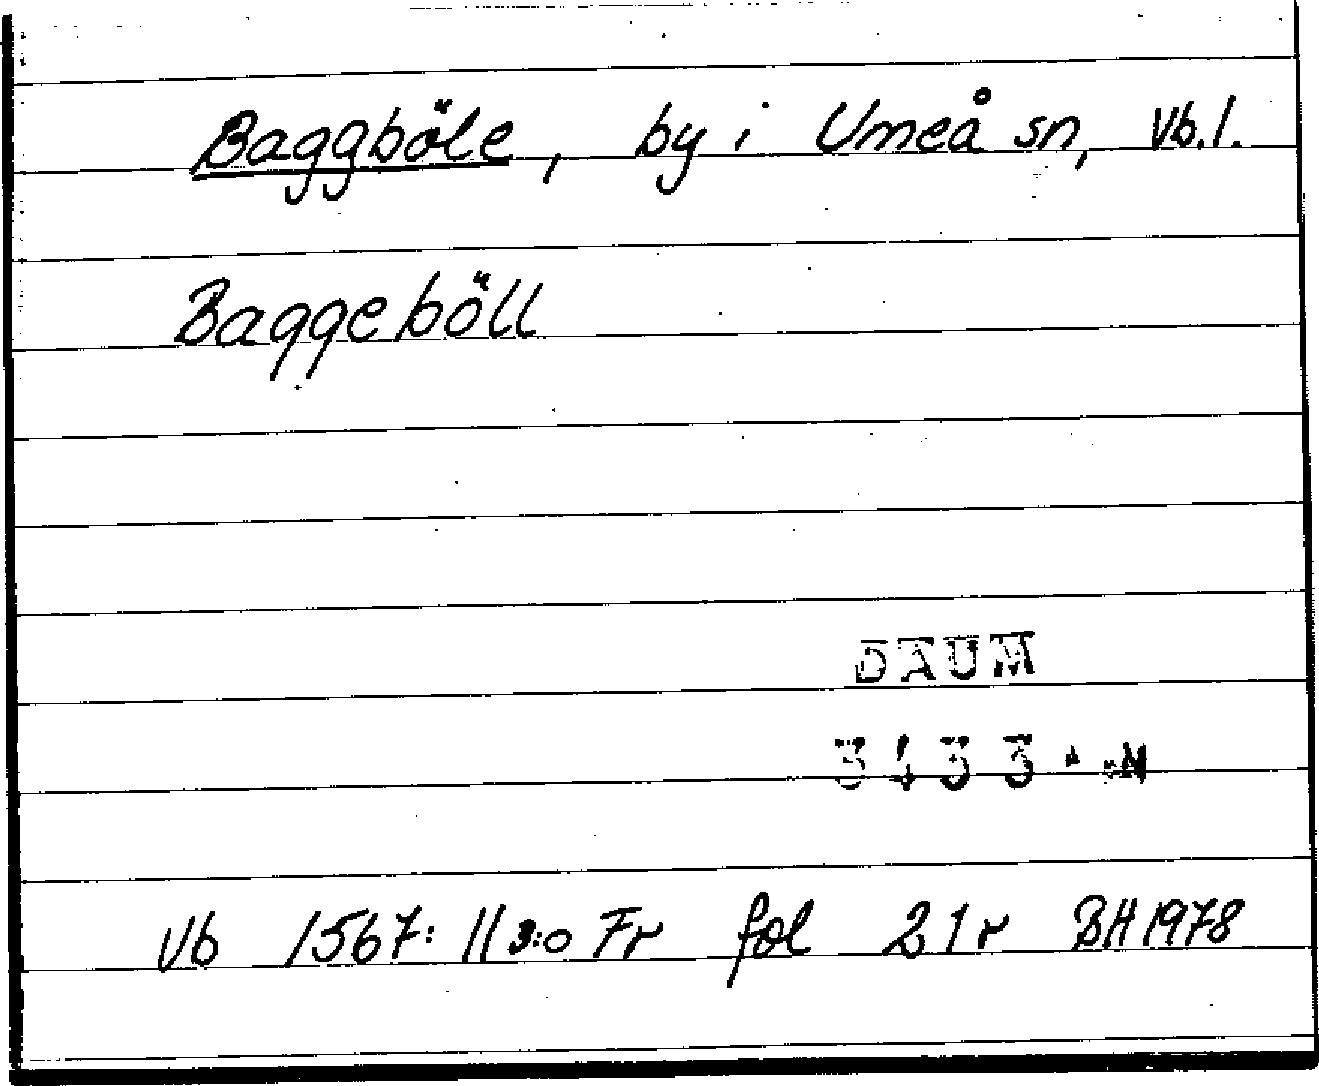 Baggböle, by i Umeå sn, Vb.l.
Baggeböll
DAUM
3433
Vb 1567: 11 3:o Fr fol 21r BH 1978